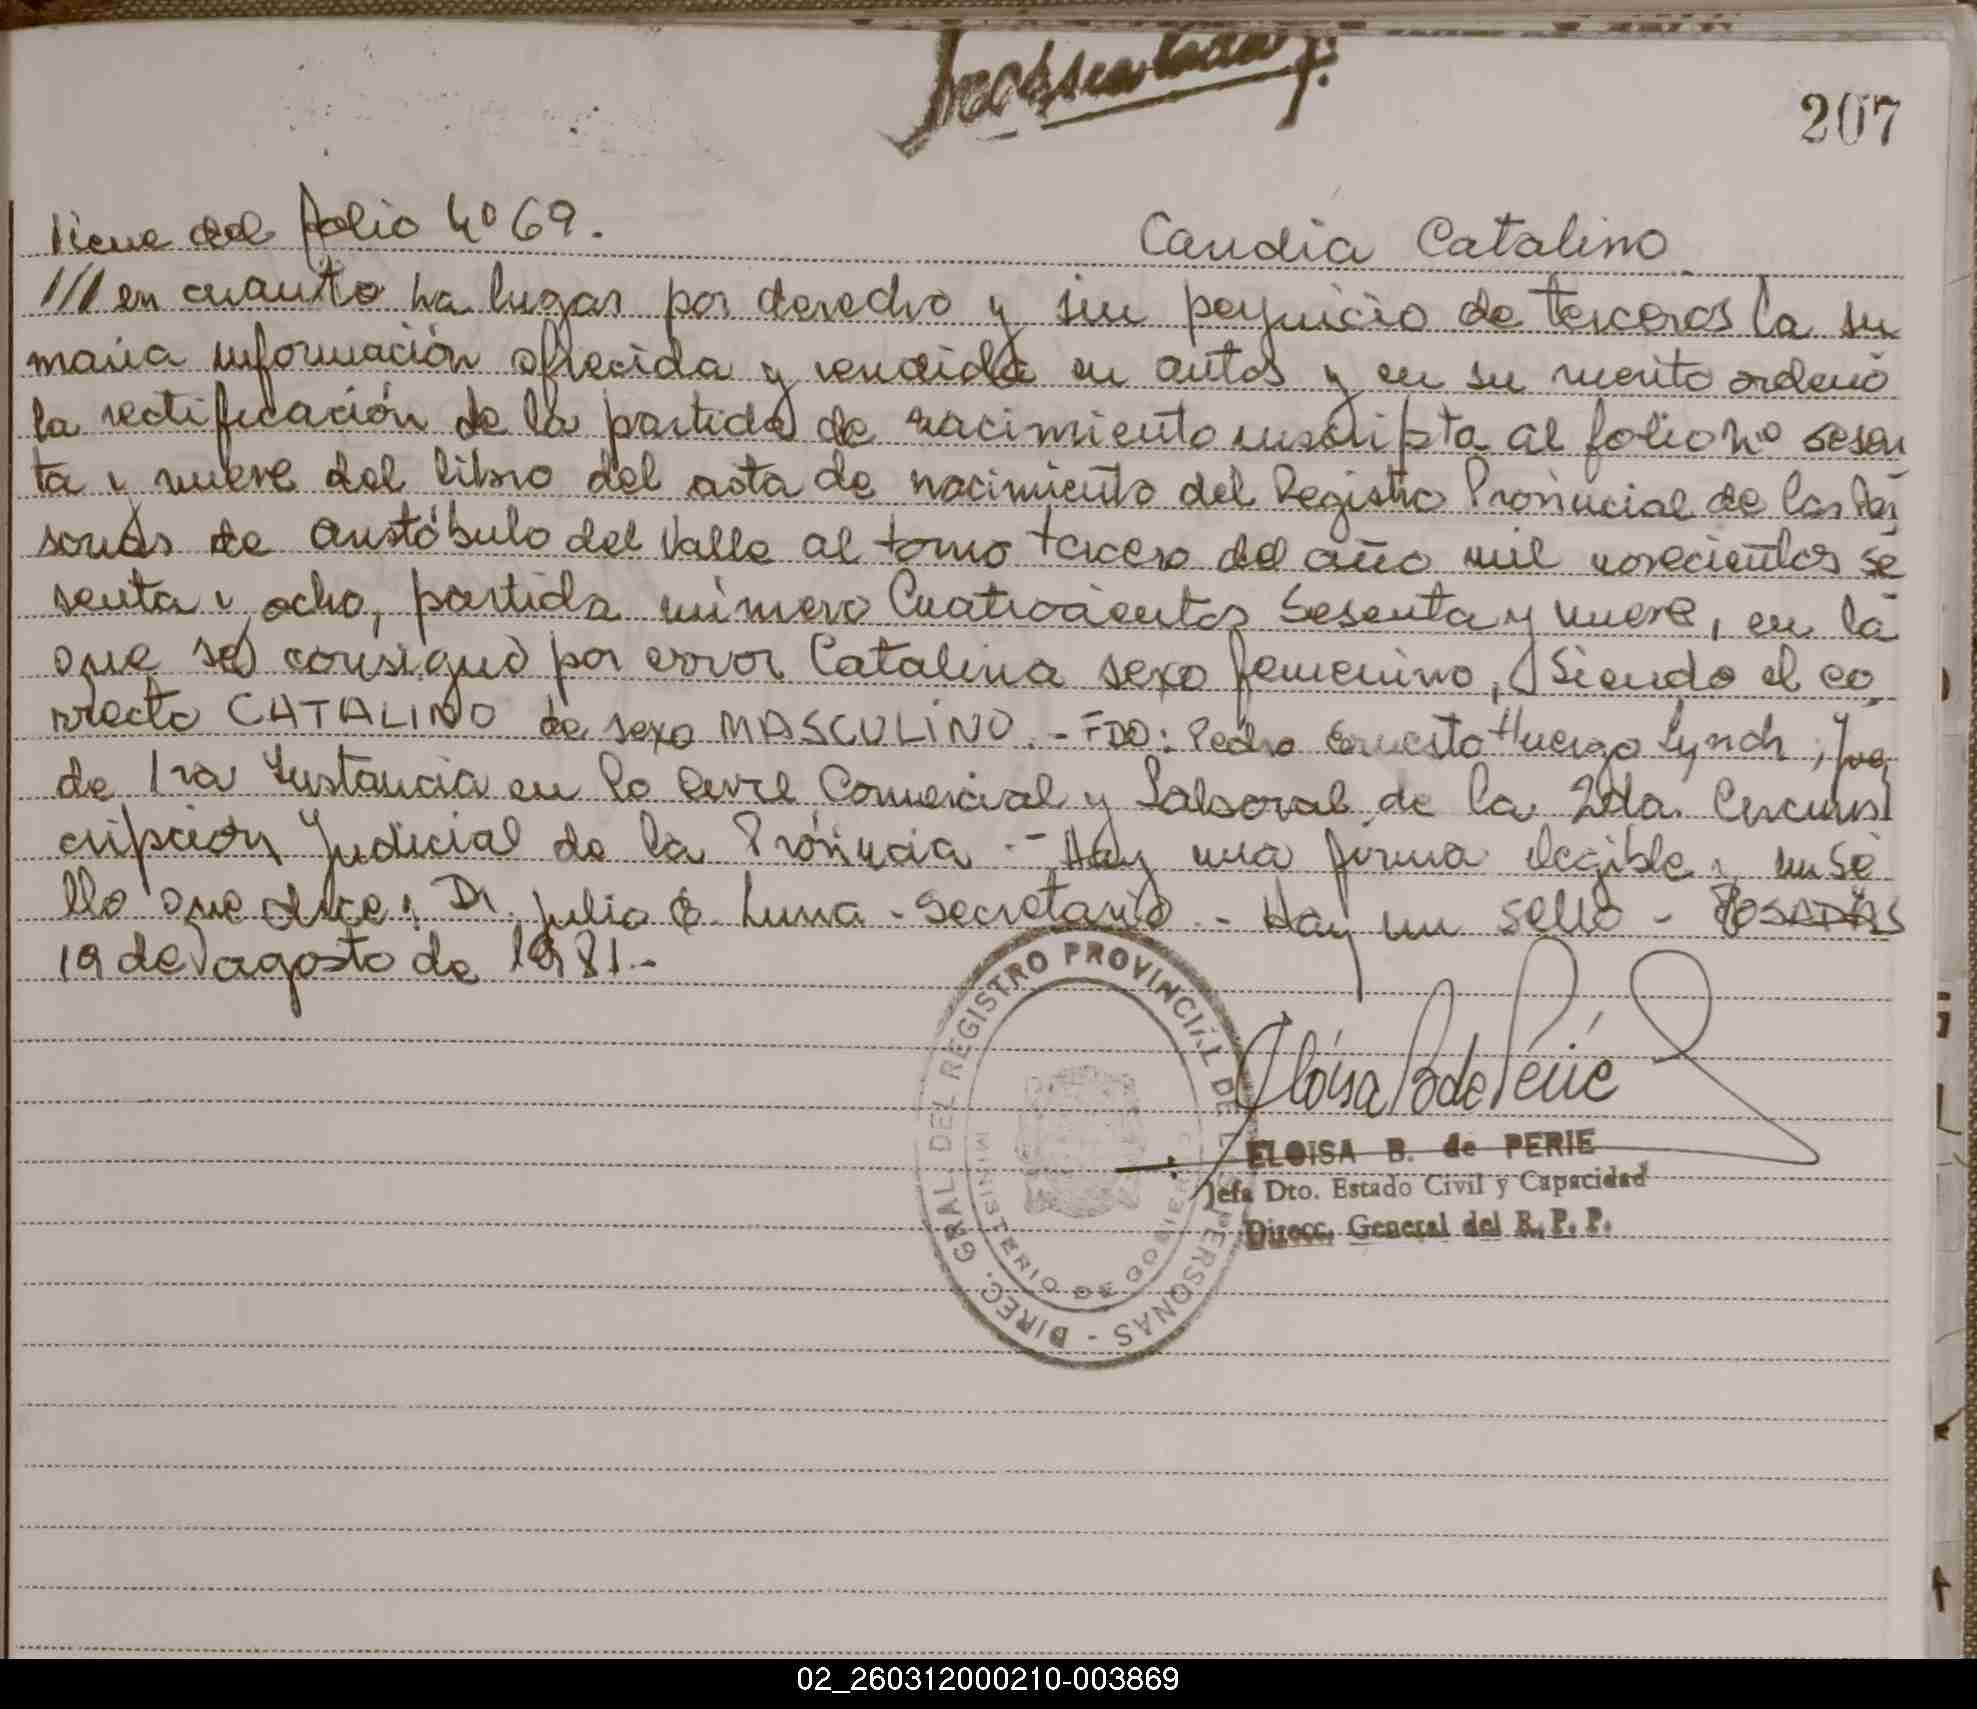 207
Viene del folio Nº 69.
Candia Catalino
/// en cuanto ha lugar por derecho y sin perjuicio de terceros la su
maria información ofrecida y rendida en autos y en su merito ordenó
la rectificación de la partida de nacimiento inscripta al folio nº sesen
ta y nueve del libro del acta de nacimiento del Registro Provincial de las Per
sonas de Aristóbulo del Valle al tomo tercero del año mil novecientos se
senta y ocho, partida número Cuatrocientos Sesenta y nueve, en la
que se consignó por error Catalina sexo femenino, Siendo el co
rrecto CATALINO de sexo MASCULINO. - FDO: Pedro Ernesto Huergo Lynch, Juez
de 1ra Instancia en lo Civil Comercial y Laboral de la 2da. Circuns
cripción Judicial de la Provincia - Hay una firma ilegible y un se
llo que dice: Dr. Julio Luna - Secretario - Hay un sello - POSADAS
19 de agosto de 1981.-
DIREC. GRAL. DEL REGISTRO PROVINCIAL DE L PERSONAS -
MINISTERIO DE GOBIERNO
Eloísa B de Perié
ELOISA B. de PERIE
Jefa Dto. Estado Civil y Capacidad
Direcc. General del R. P. P.
02_260312000210-003869